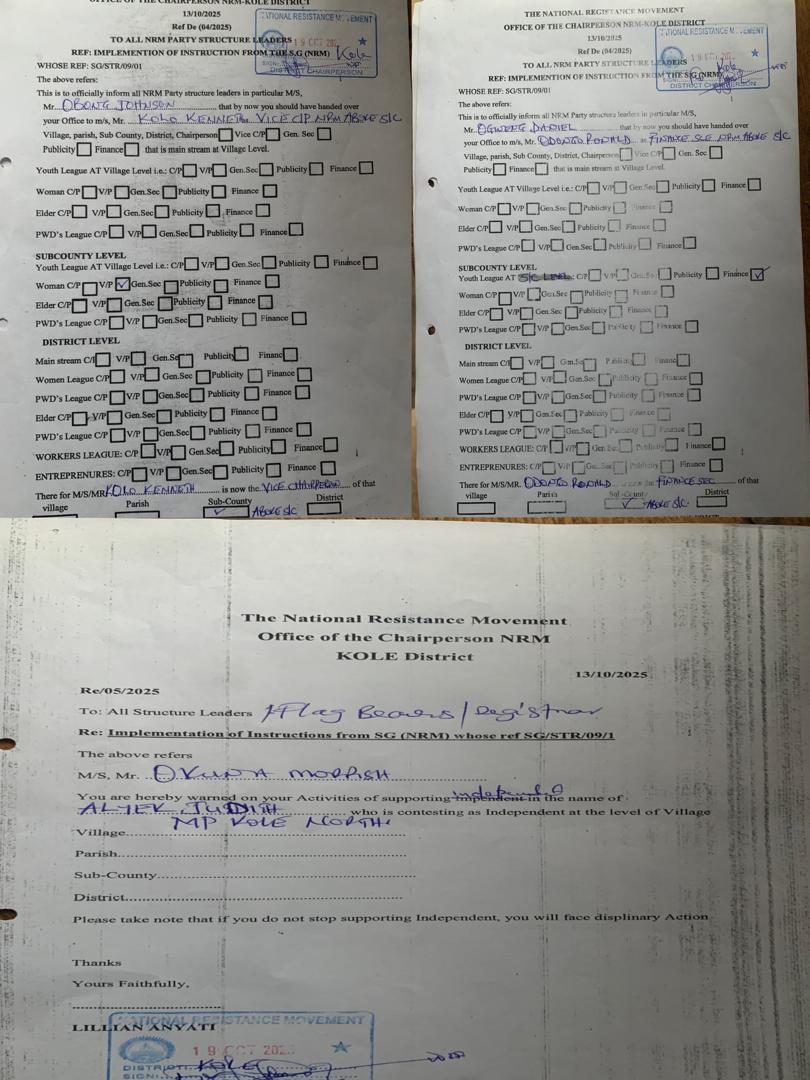 OFFICE OF THE CHAIRPERSON NRM-KOLE DISTRICT
13/10/2025
Ref De (04/2025)
TO ALL NRM PARTY STRUCTURE LEADERS
REF: IMPLEMENTION OF INSTRUCTION FROM THE S.G (NRM) Kole
WHOSE REF: SG/STR/09/01
The above refers:
This is to officially inform all NRM Party structure leaders in particular M/S,
Mr. OBONG JOHNSON that by now you should have handed over
your Office to m/s, Mr. KOLO KENNETH VICE C/P NRM ABOKE S/C
Village, parish, Sub County, District, Chairperson Vice C/P Gen. Sec
Publicity Finance that is main stream at Village Level.
Youth League AT Village Level i.e.: C/P V/P Gen.Sec Publicity Finance
Woman C/P V/P Gen.Sec Publicity Finance
Elder C/P V/P Gen.Sec Publicity Finance
PWD's League C/P V/P Gen.Sec Publicity Finance
SUBCOUNTY LEVEL
Youth League AT Village Level i.e.: C/P V/P Gen.Sec Publicity Finance
Woman C/P V/P Gen.Sec Publicity Finance
Elder C/P V/P Gen.Sec Publicity Finance
PWD's League C/P V/P Gen.Sec Publicity Finance
DISTRICT LEVEL
Main stream C/P V/P Gen.Sec Publicity Finance
Women League C/P V/P Gen.Sec Publicity Finance
PWD's League C/P V/P Gen.Sec Publicity Finance
Elder C/P V/P Gen.Sec Publicity Finance
PWD's League C/P V/P Gen.Sec Publicity Finance
WORKERS LEAGUE: C/P V/P Gen.Sec Publicity Finance
ENTREPRENURES: C/P V/P Gen.Sec Publicity Finance
There for M/S/MR. KOLO KENNETH is now the VICE CHAIRPERSON of that
village Parish Sub-County ABOKE S/C District
NATIONAL RESISTANCE MOVEMENT
19 OCT 202
DISTRICT CHAIRPERSON
THE NATIONAL REGISTANCE MOVEMENT
OFFICE OF THE CHAIRPERSON NRM-KOLE DISTRICT
13/10/2025
Ref De (04/2025)
TO ALL NRM PARTY STRUCTURE LEADERS
REF: IMPLEMENTION OF INSTRUCTION FROM THE SG (NRM)
WHOSE REF: SG/STR/09/01
The above refers:
This is to officially inform all NRM Party structure leaders in particular M/S,
Mr. OGWENG DANIEL that by now you should have handed over
your Office to m/s, Mr. ODONGO RONALD as FINANCE SEC NRM ABOKE S/C
Village, parish, Sub County, District, Chairperson Vice C/P Gen. Sec
Publicity Finance that is main stream at Village Level.
Youth League AT Village Level i.e.: C/P V/P Gen.Sec Publicity Finance
Woman C/P V/P Gen.Sec Publicity Finance
Elder C/P V/P Gen.Sec Publicity Finance
PWD's League C/P V/P Gen.Sec Publicity Finance
SUBCOUNTY LEVEL
Youth League AT S/C LEVEL: C/P V/P Gen.Sec Publicity Finance
Woman C/P V/P Gen.Sec Publicity Finance
Elder C/P V/P Gen.Sec Publicity Finance
PWD's League C/P V/P Gen.Sec Publicity Finance
DISTRICT LEVEL
Main stream C/P V/P Gen.Sec Publicity Finance
Women League C/P V/P Gen.Sec Publicity Finance
PWD's League C/P V/P Gen.Sec Publicity Finance
Elder C/P V/P Gen.Sec Publicity Finance
PWD's League C/P V/P Gen.Sec Publicity Finance
WORKERS LEAGUE: C/P V/P Gen.Sec Publicity Finance
ENTREPRENURES: C/P V/P Gen.Sec Publicity Finance
There for M/S/MR. ODONGO RONALD is now the FINANCE SEC of that
village Parish Sub-County ABOKE S/C District
NATIONAL RESISTANCE M
19 OCT 202
Kole
DISTRICT CHAIRPERSON
The National Resistance Movement
Office of the Chairperson NRM
KOLE District
13/10/2025
Re/05/2025
To: All Structure Leaders / Flag Bearers / Registrar
Re: Implementation of Instructions from SG (NRM) whose ref SG/STR/09/1
The above refers
M/S, Mr. OKUNA MORRISH
You are hereby warned on your Activities of supporting Impendent in the name of
ALYEK JUDITH who is contesting as Independent at the level of Village
MP KOLE NORTH.
Village
Parish
Sub-County
District
Please take note that if you do not stop supporting Independent, you will face displinary Action
Thanks
Yours Faithfully,
LILLIAN ANYATI
NATIONAL RESISTANCE MOVEMENT
19 OCT 202
DISTRICT KOLE
SIGN: